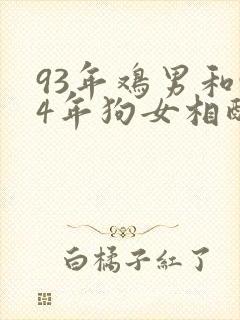 93年鸡男和
4年狗女相
白橘子紅了